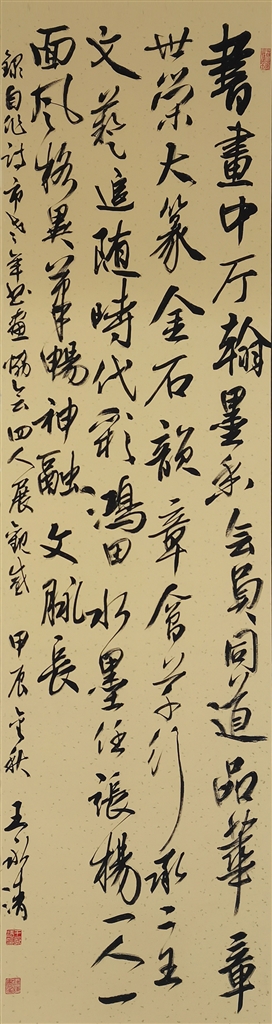 書畫中厅翰墨香会員同道品華章
世荣大篆金石韻章奮草行承二王
文藝追随時代彩鴻田水墨任張楊一人一
面風格異筆暢神融文脉長
錄自作詩市老年书画協会四人展觀感 甲辰金秋 王永清